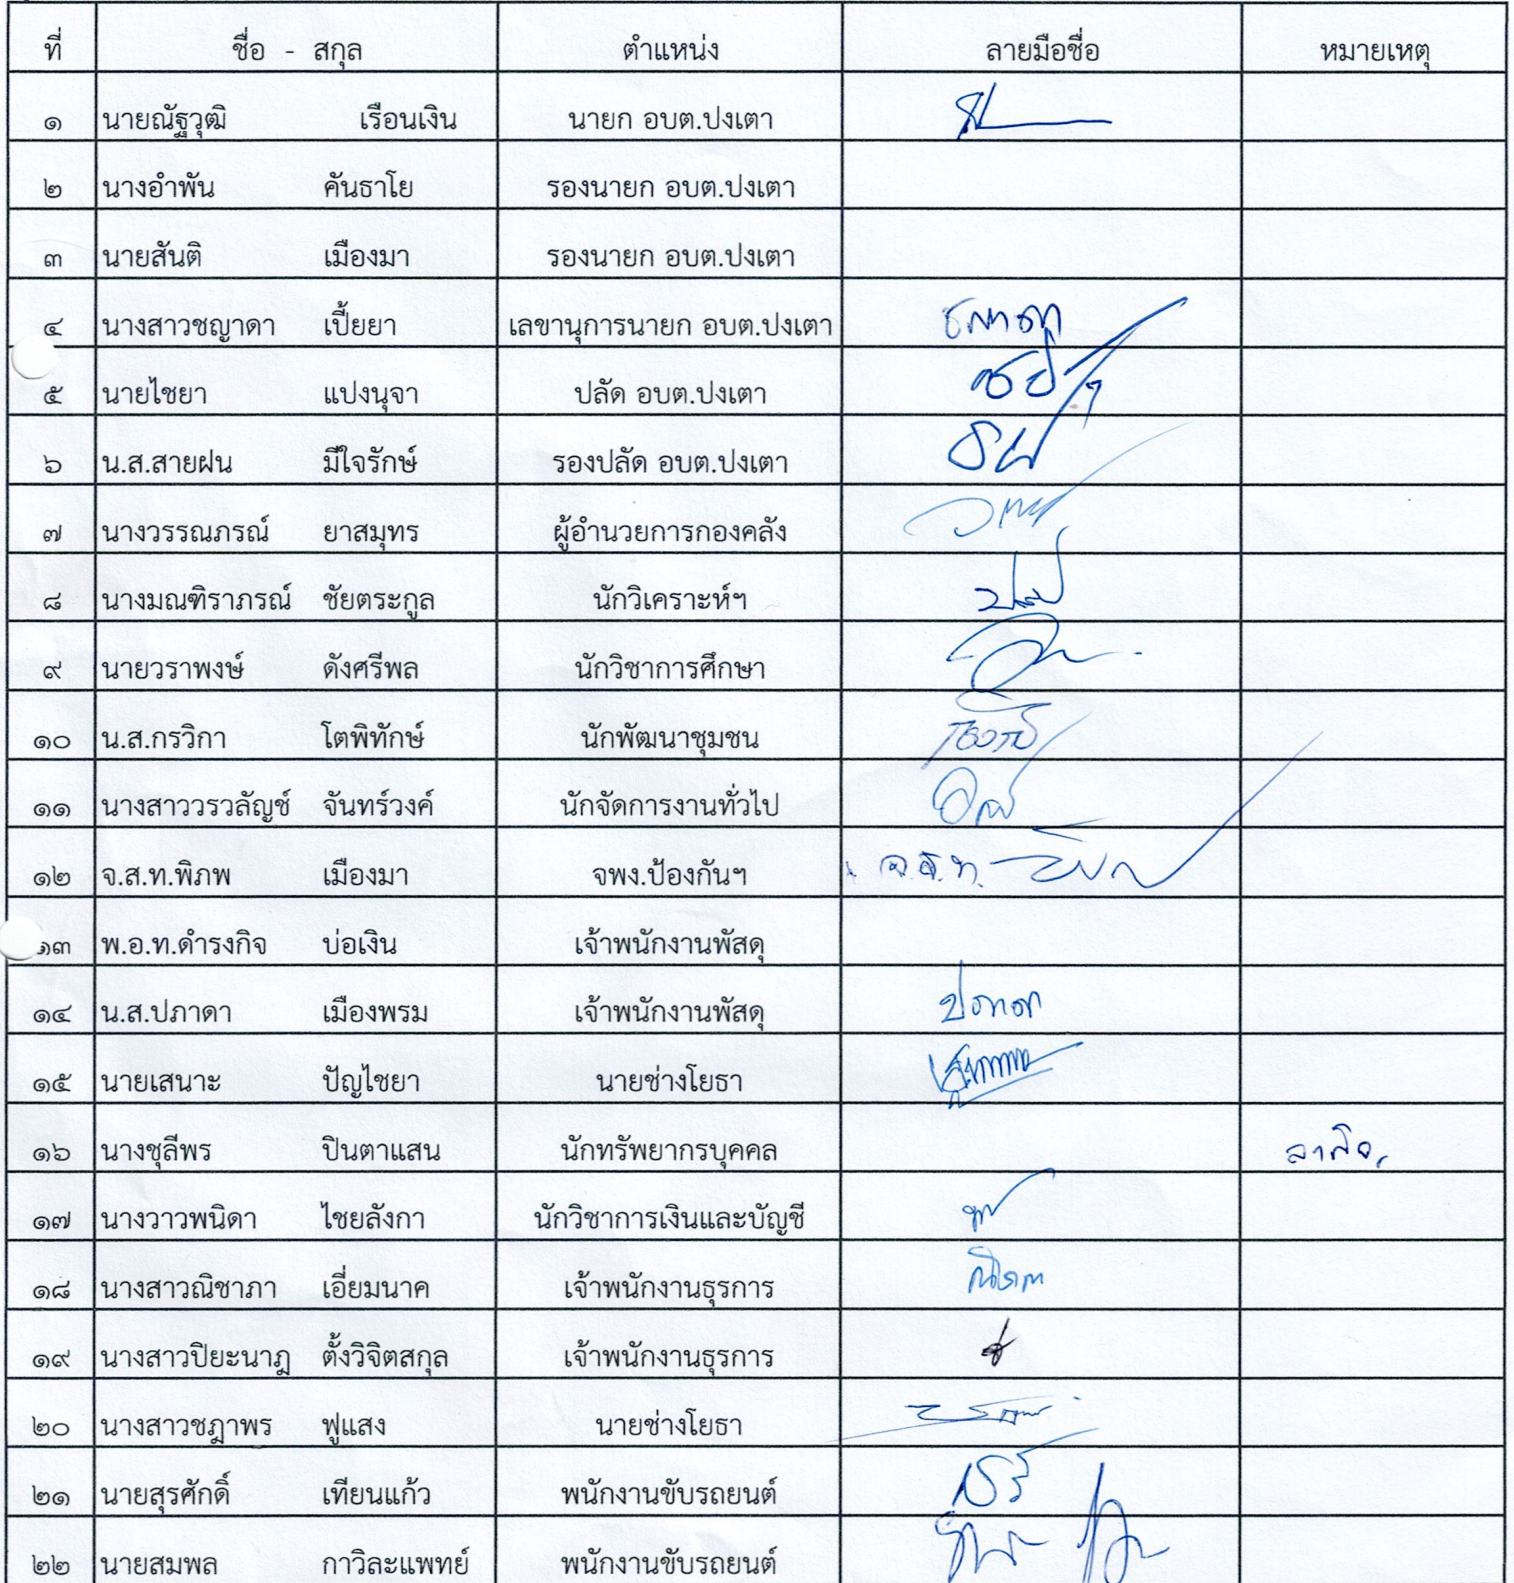 ที่ ชื่อ - สกุล ตำแหน่ง ลายมือชื่อ หมายเหตุ
๑ นายณัฐวุฒิ เรือนเงิน นายก อบต.ปงเตา
๒ นางอำพัน คันธาโย รองนายก อบต.ปงเตา
๓ นายสันติ เมืองมา รองนายก อบต.ปงเตา
๔ นางสาวชญาดา เปี้ยยา เลขานุการนายก อบต.ปงเตา
๕ นายไชยา แปงนุจา ปลัด อบต.ปงเตา
๖ น.ส.สายฝน มีใจรักษ์ รองปลัด อบต.ปงเตา
๗ นางวรรณภรณ์ ยาสมุทร ผู้อำนวยการกองคลัง
๘ นางมณฑิราภรณ์ ชัยตระกูล นักวิเคราะห์ฯ
๙ นายวราพงษ์ ดังศรีพล นักวิชาการศึกษา
๑๐ น.ส.กรวิกา โตพิทักษ์ นักพัฒนาชุมชน
๑๑ นางสาววรวลัญช์ จันทร์วงค์ นักจัดการงานทั่วไป
๑๒ จ.ส.ท.พิภพ เมืองมา จพง.ป้องกันฯ จ.ส.ท.
๑๓ พ.อ.ท.ดำรงกิจ บ่อเงิน เจ้าพนักงานพัสดุ
๑๔ น.ส.ปภาดา เมืองพรม เจ้าพนักงานพัสดุ ปภาดา
๑๕ นายเสนาะ ปัญไชยา นายช่างโยธา
๑๖ นางชุลีพร ปินตาแสน นักทรัพยากรบุคคล ลากิจ
๑๗ นางวาวพนิดา ไชยลังกา นักวิชาการเงินและบัญชี
๑๘ นางสาวณิชาภา เอี่ยมนาค เจ้าพนักงานธุรการ
๑๙ นางสาวปิยะนาฎ ตั้งวิจิตสกุล เจ้าพนักงานธุรการ
๒๐ นางสาวชฎาพร ฟูแสง นายช่างโยธา
๒๑ นายสุรศักดิ์ เทียนแก้ว พนักงานขับรถยนต์
๒๒ นายสมพล กาวิละแพทย์ พนักงานขับรถยนต์